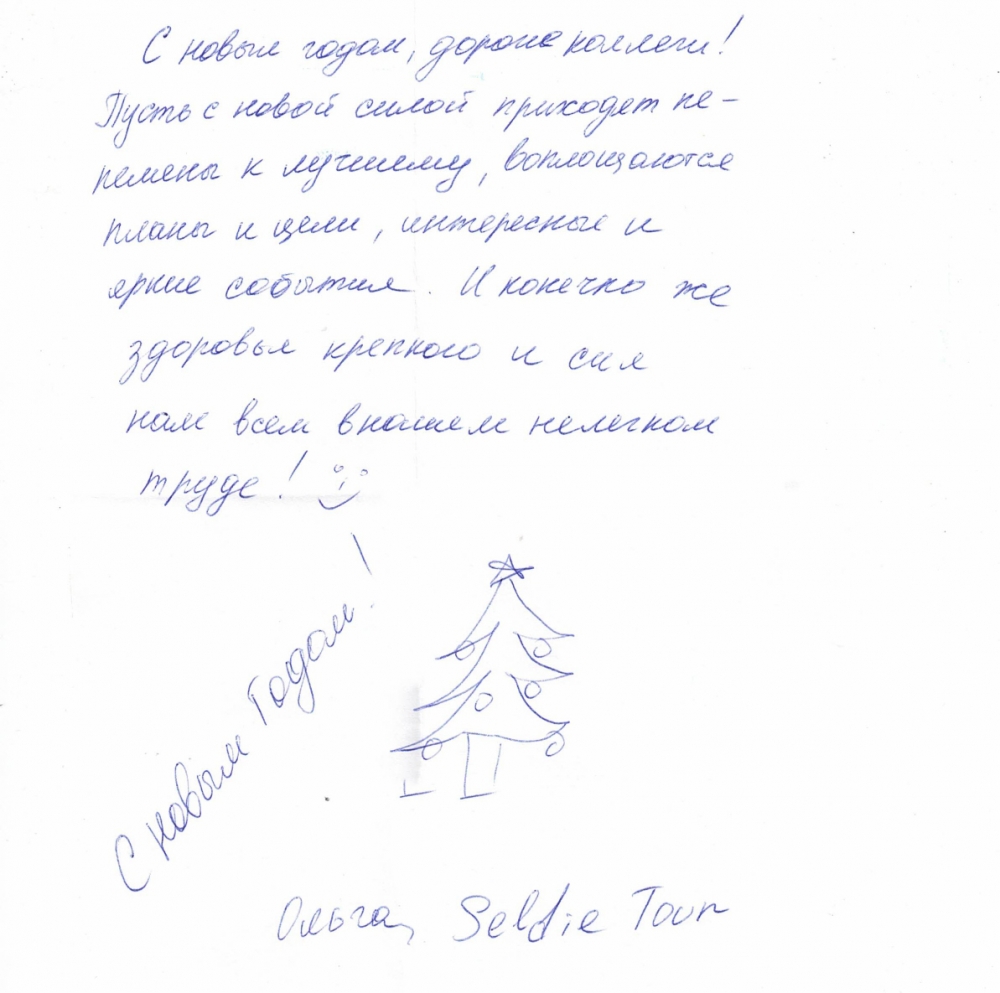 С новым годом, дорогие коллеги!
Пусть с новой силой приходят пе-
ремены к лучшему, воплощаются
планы и цели, интересные и
яркие события. И конечно же
здоровья крепкого и сил
нам всем в нашем нелегком
труде!
С новым Годом!
Ольга, Selfie Tour